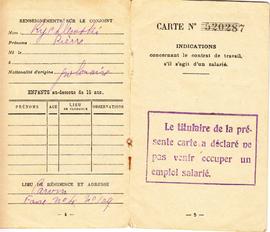 RENSEIGNEMENTS SUR LE CONJOINT
Nom
Prénoms Pierre
Né le
à
Nationalité d'origine polonaise
ENFANTS au-dessous de 15 ans.
PRÉNOMS AGE LIEU DE NAISSANCE OBSERVATIONS
LIEU DE RÉSIDENCE ET ADRESSE
— 4 —
CARTE N° 520287
INDICATIONS
concernant le contrat de travail,
s'il s'agit d'un salarié.
Le titulaire de la pré-
sente carte, a déclaré ne
pas venir occuper un
emploi salarié.
— 5 —